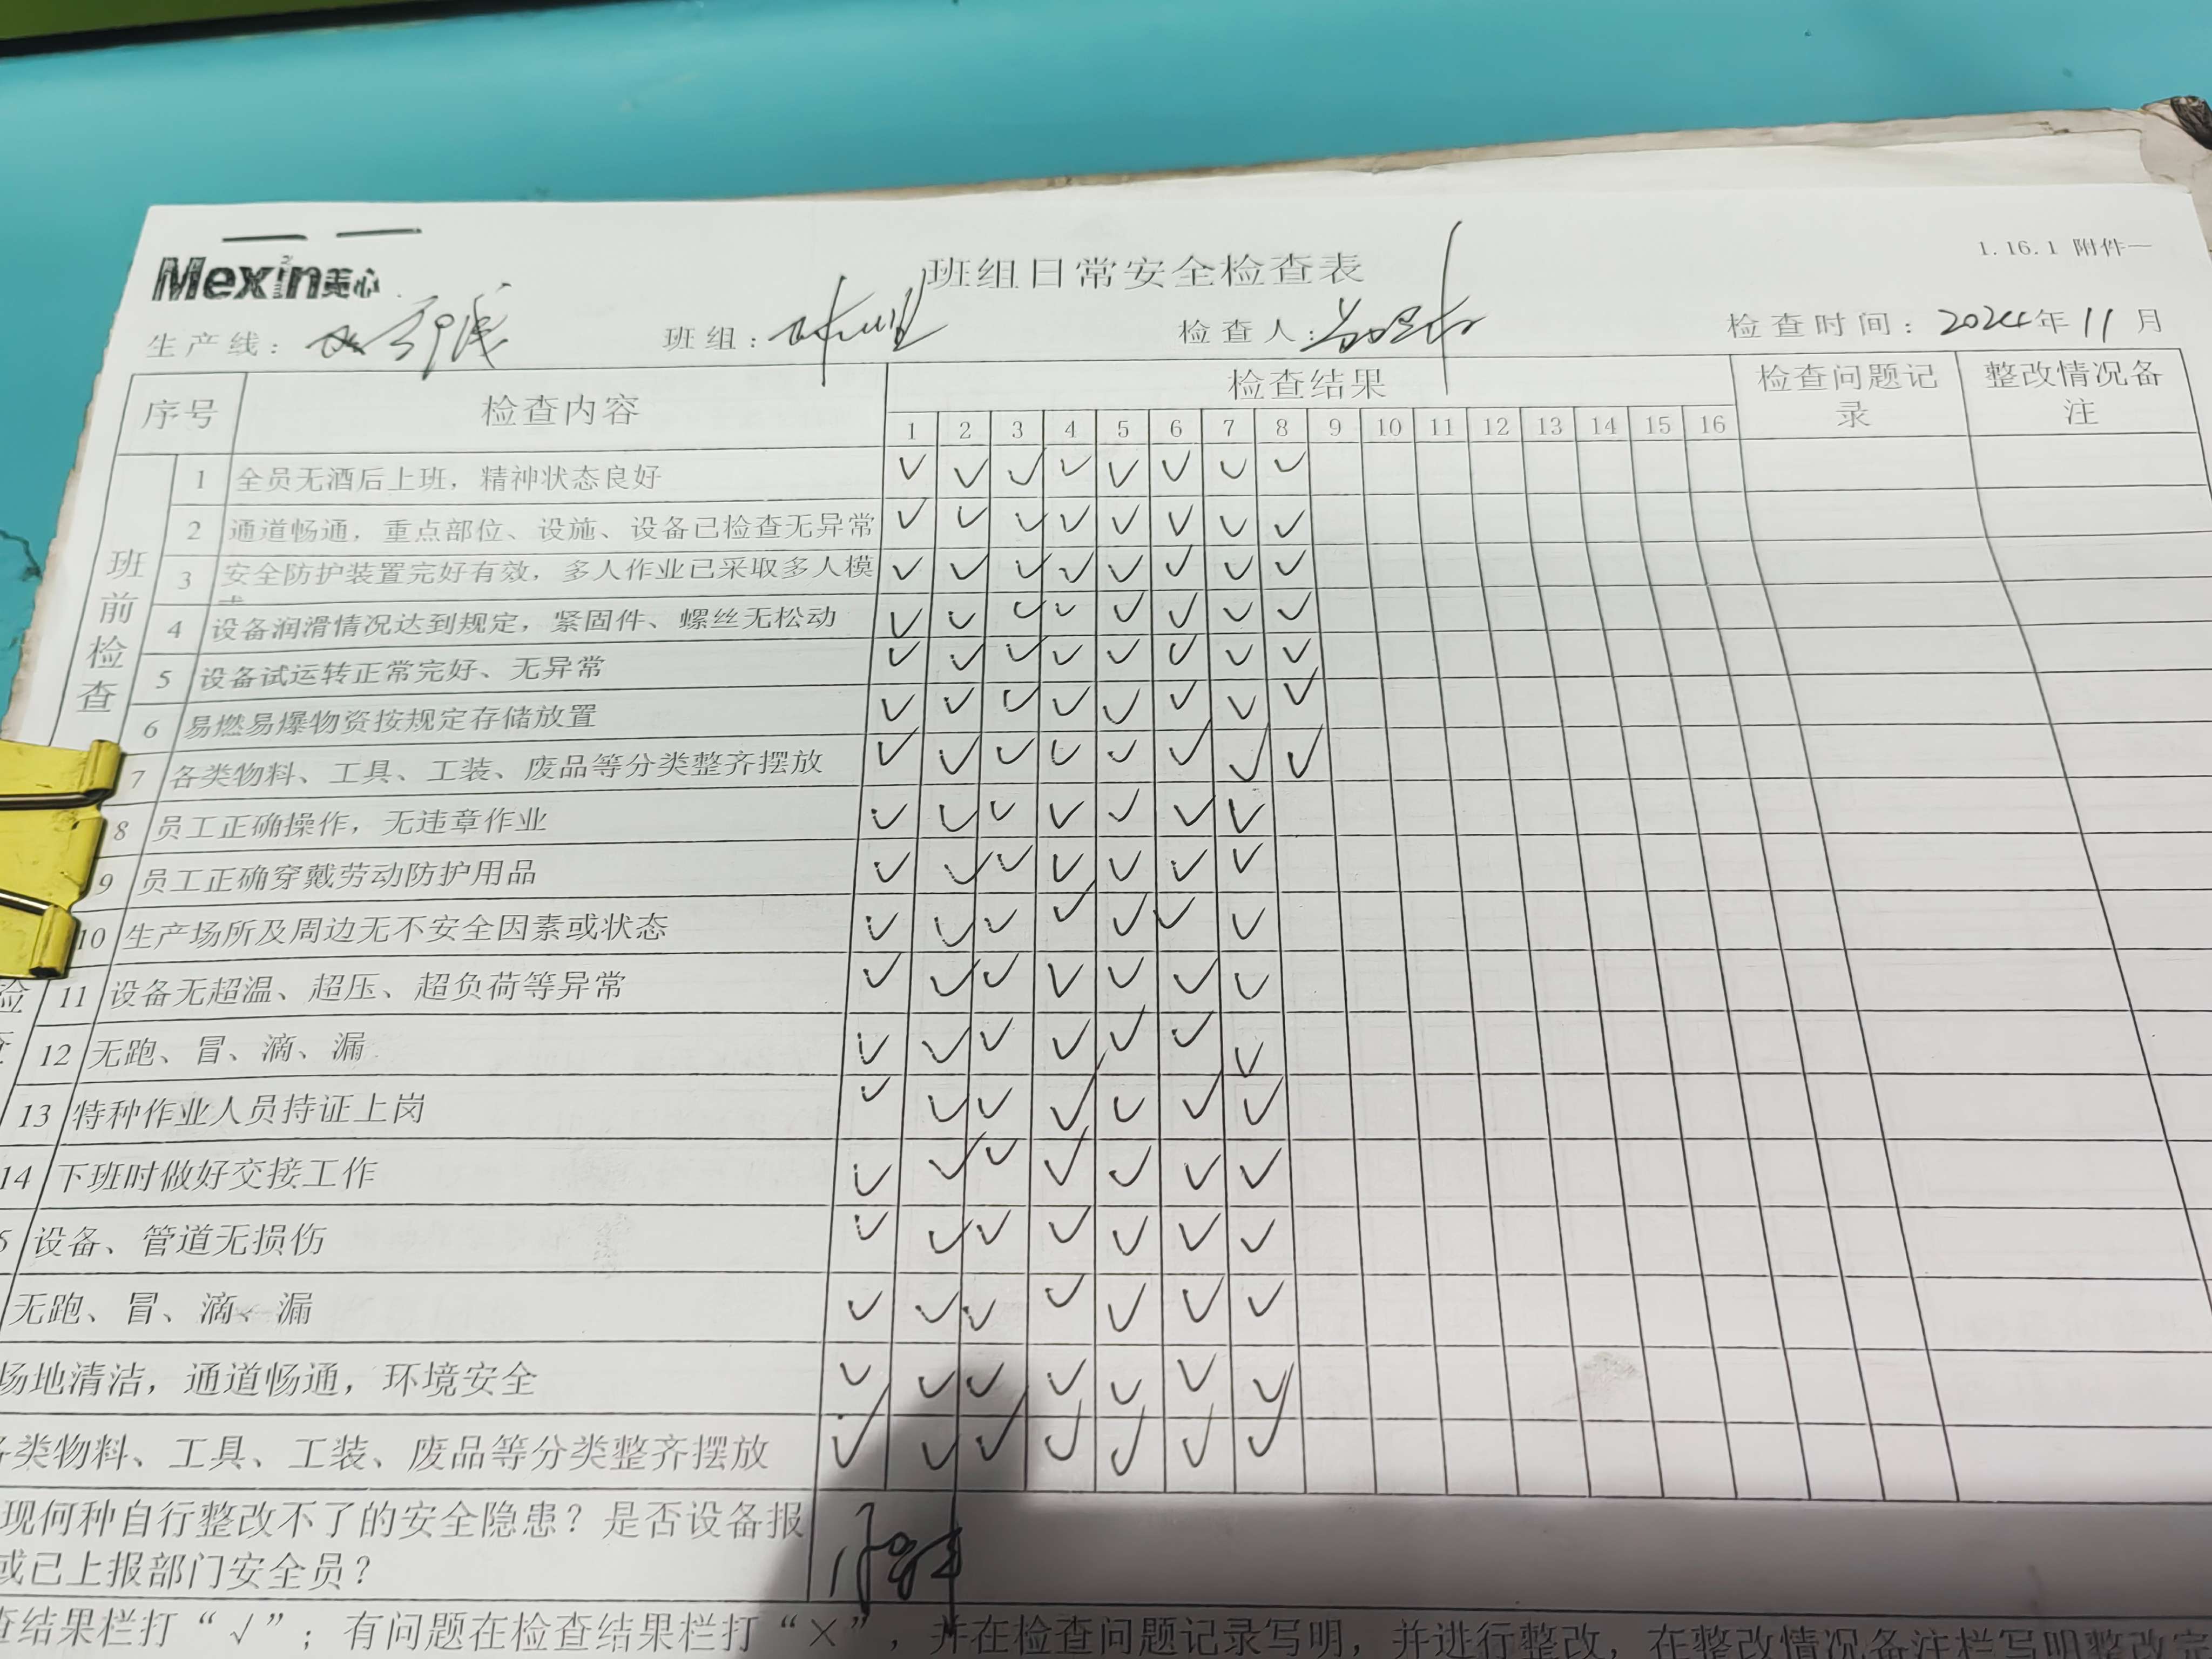 1.16.1 附件一
Mexin美心
班组日常安全检查表
生产线： 班组： 检查人： 检查时间：2024年11月
序号 检查内容 检查结果 检查问题记录 整改情况备注
1 2 3 4 5 6 7 8 9 10 11 12 13 14 15 16
班前检查
1 全员无酒后上班，精神状态良好 ✓ ✓ ✓ ✓ ✓ ✓ ✓ ✓
2 通道畅通，重点部位、设施、设备已检查无异常 ✓ ✓ ✓ ✓ ✓ ✓ ✓ ✓
3 安全防护装置完好有效，多人作业已采取多人模 ✓ ✓ ✓ ✓ ✓ ✓ ✓ ✓
4 设备润滑情况达到规定，紧固件、螺丝无松动 ✓ ✓ ✓ ✓ ✓ ✓ ✓ ✓
5 设备试运转正常完好、无异常 ✓ ✓ ✓ ✓ ✓ ✓ ✓ ✓
6 易燃易爆物资按规定存储放置 ✓ ✓ ✓ ✓ ✓ ✓ ✓ ✓
7 各类物料、工具、工装、废品等分类整齐摆放 ✓ ✓ ✓ ✓ ✓ ✓ ✓ ✓
8 员工正确操作，无违章作业 ✓ ✓ ✓ ✓ ✓ ✓ ✓
9 员工正确穿戴劳动防护用品 ✓ ✓ ✓ ✓ ✓ ✓ ✓
10 生产场所及周边无不安全因素或状态 ✓ ✓ ✓ ✓ ✓ ✓ ✓
检查
11 设备无超温、超压、超负荷等异常 ✓ ✓ ✓ ✓ ✓ ✓ ✓
12 无跑、冒、滴、漏 ✓ ✓ ✓ ✓ ✓ ✓ ✓
13 特种作业人员持证上岗 ✓ ✓ ✓ ✓ ✓ ✓ ✓
14 下班时做好交接工作 ✓ ✓ ✓ ✓ ✓ ✓ ✓
5 设备、管道无损伤 ✓ ✓ ✓ ✓ ✓ ✓ ✓
无跑、冒、滴、漏 ✓ ✓ ✓ ✓ ✓ ✓ ✓
场地清洁，通道畅通，环境安全 ✓ ✓ ✓ ✓ ✓ ✓ ✓
各类物料、工具、工装、废品等分类整齐摆放 ✓ ✓ ✓ ✓ ✓ ✓ ✓
现何种自行整改不了的安全隐患？是否设备报
或已上报部门安全员？
查结果栏打“√”；有问题在检查结果栏打“×”，并在检查问题记录写明，并进行整改，在整改情况备注栏写明整改完